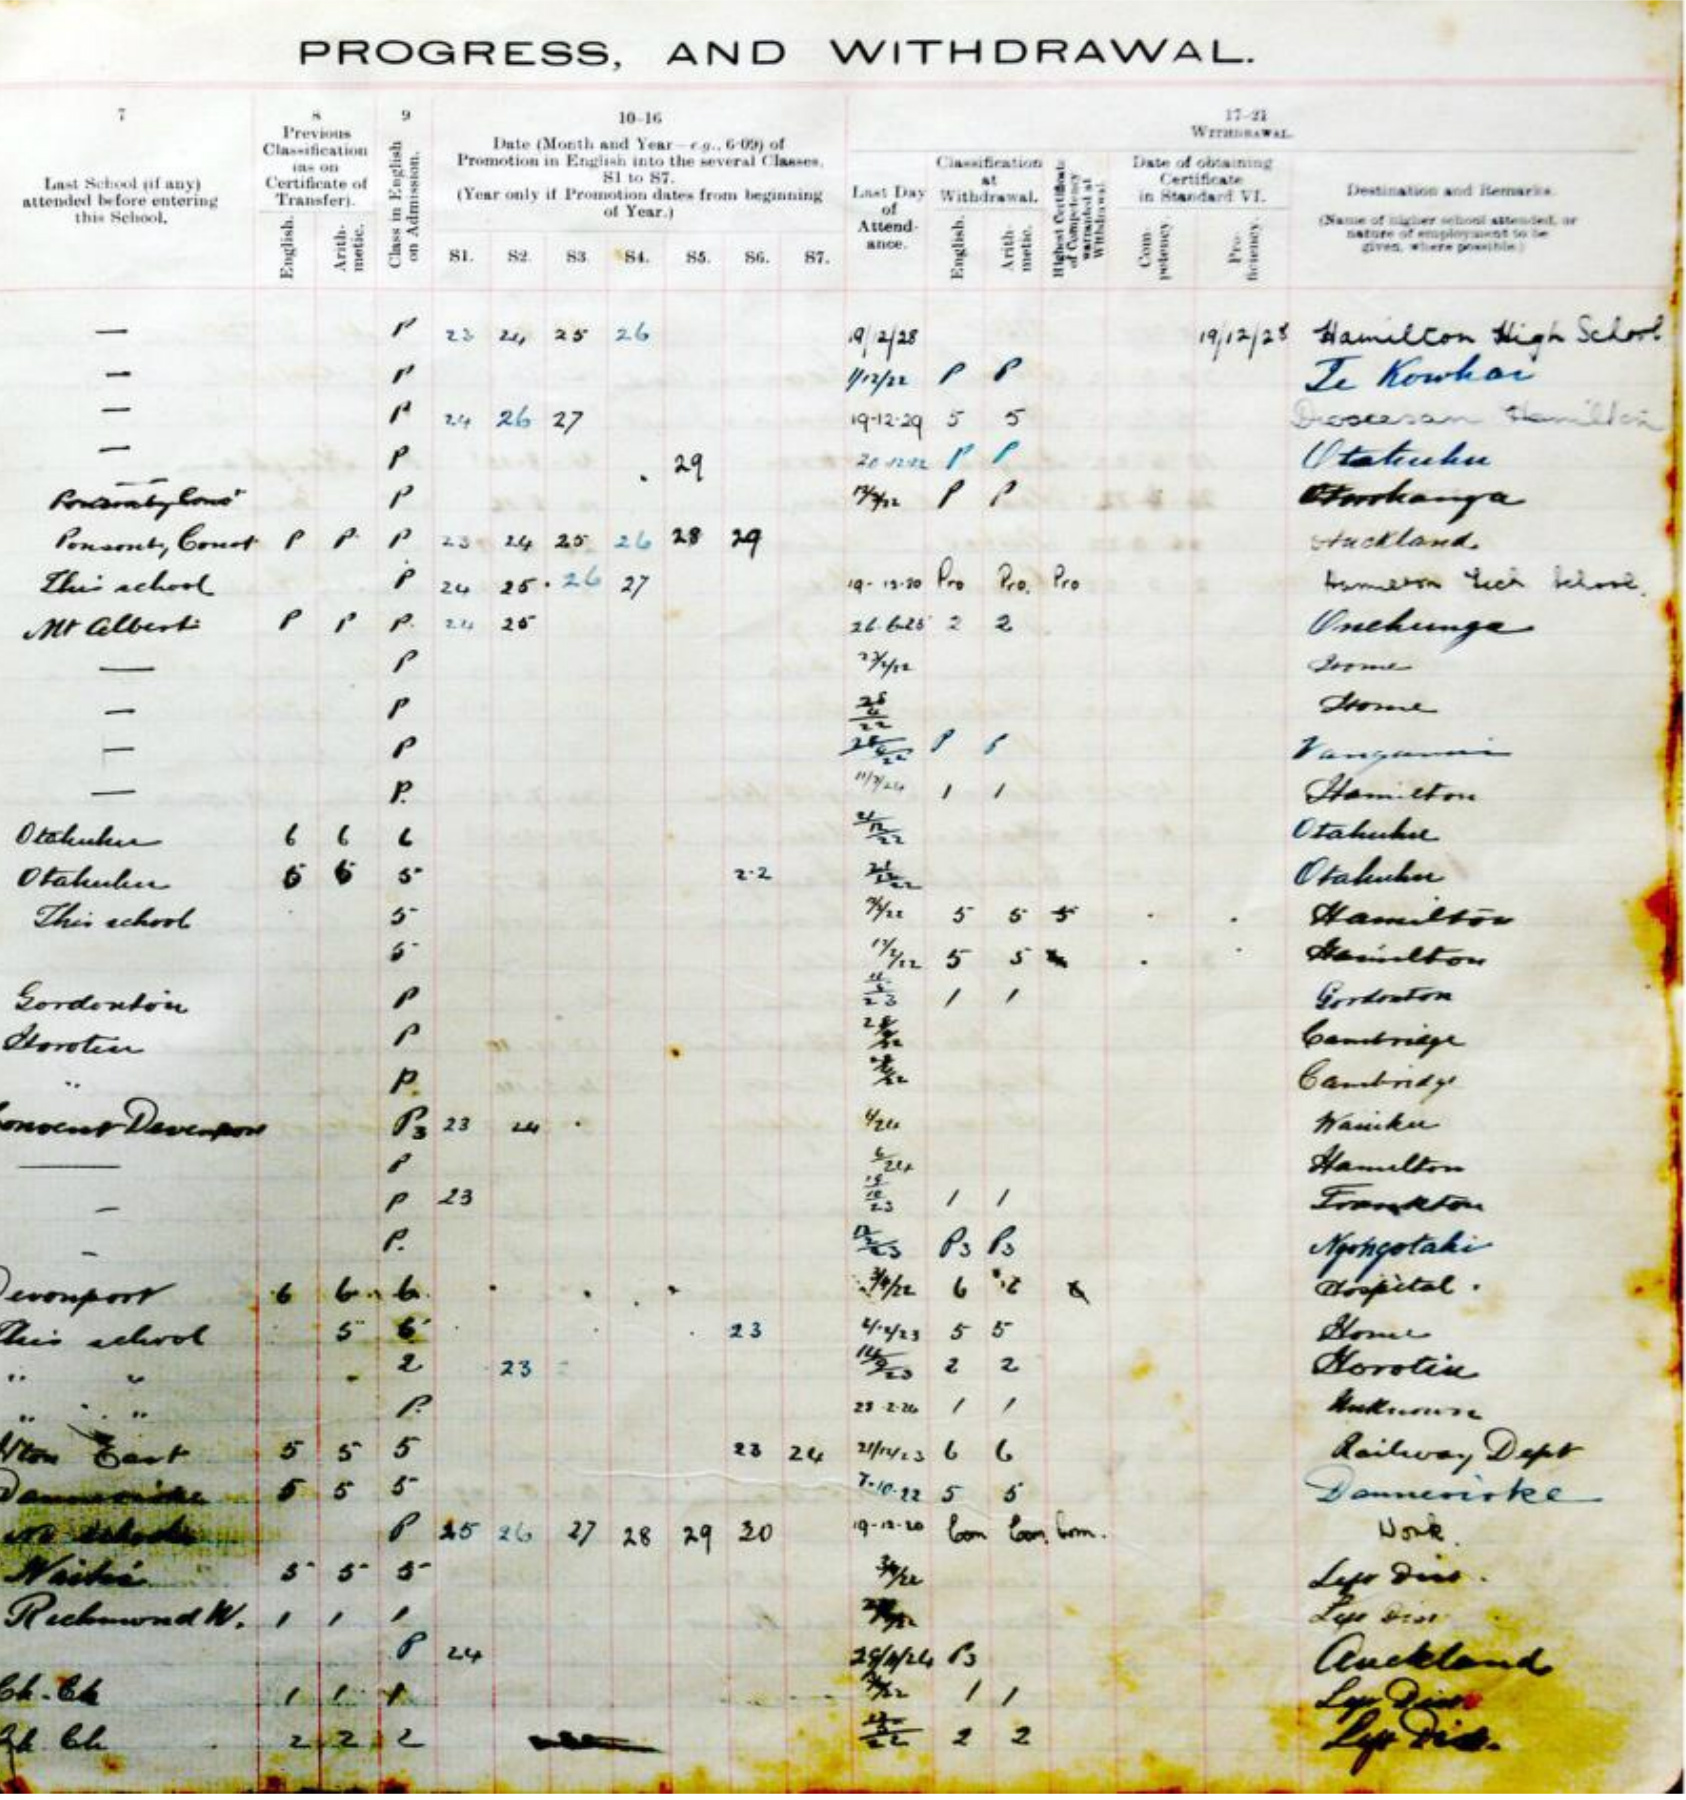 PROGRESS, AND WITHDRAWAL.
7 8 9 10-16 17-21
Last School (if any) attended before entering this School.
Previous Classification (as on Certificate of Transfer).
English. Arithmetic.
Class in English on Admission.
Date (Month and Year—e.g., 6·09) of Promotion in English into the several Classes, S1 to S7.
(Year only if Promotion dates from beginning of Year.)
S1. S2. S3. S4. S5. S6. S7.
WITHDRAWAL.
Last Day of Attendance.
Classification at Withdrawal.
English. Arithmetic.
Highest Certificate of Competency warranted at Withdrawal.
Date of obtaining Certificate in Standard VI.
Competency. Proficiency.
Destination and Remarks.
(Name of higher school attended, or nature of employment to be given, where possible.)
— P 23 24 25 26 19/12/28 19/12/28 Hamilton High School
— P 1/12/22 P P Te Kowhai
— P 24 26 27 19-12-29 5 5 Diocesan Hamilton
— P 29 20-12-22 P P Otahuhu
P P P Otorohanga
Ponsonby Convt P P P 23 24 25 26 28 29 Auckland
This school P 24 25 26 27 Pro Pro. Pro Hamilton Tech School.
Mt Albert P P P 24 25 26.6.25 2 2 Onehunga
— P Home
— P Home
— P P P Wanganui
— P. 1 1 Hamilton
Otahuhu 6 6 6 Otahuhu
Otahuhu 5 22 Otahuhu
This school 5 5 5 5 Hamilton
5 5 5 Hamilton
Gordonton P 1 1 Gordonton
Horotiu P Cambridge
" P. Cambridge
Convent Devenport P3 23 24 Waiuku
— P Hamilton
— P 23 1 1 Frankton
— P. P3 P3 Ngongotaki
Devonport 6 6 6 6 6 Hospital.
This school 5 23 5 5 Home
" " 2 23 2 2 Horotiu
" " P. 1 1 Unknown
East 5 5 5 23 24 21/12/23 6 6 Railway Dept
Dannevirke 5 5 5 7-10-22 5 5 Dannevirke
No school P 25 26 27 28 29 30 Com Com. Com. Work.
Waihi 5 5 5
Richmond W. 1 1 1
P 24 P3 Auckland
Ch. Ch 1 1 1 1 1
Ch Ch 2 2 2 2 2